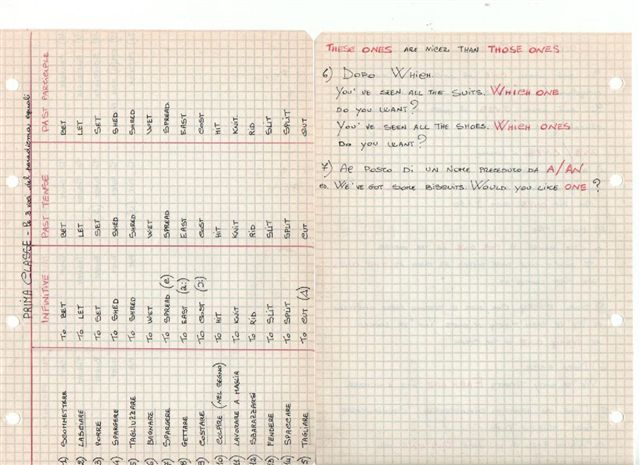 PRIMA CLASSE - le 3 voci del paradigma uguali
INFINITIVE PAST TENSE PAST PARTICIPLE
1) SCOMMETTERE TO BET BET BET
2) LASCIARE TO LET LET LET
3) PORRE TO SET SET SET
4) SPARGERE TO SHED SHED SHED
5) TAGLIUZZARE TO SHRED SHRED SHRED
6) BAGNARE TO WET WET WET
7) SPARGERE TO SPREAD (e) SPREAD SPREAD
8) GETTARE TO CAST (a:) CAST CAST
9) COSTARE TO COST (ɔ:) COST COST
0) COLPIRE (NEL SEGNO) TO HIT HIT HIT
1) LAVORARE A MAGLIA TO KNIT KNIT KNIT
2) SBARAZZARSI TO RID RID RID
3) FENDERE TO SLIT SLIT SLIT
4) SPACCARE TO SPLIT SPLIT SPLIT
5) TAGLIARE TO CUT (Λ) CUT CUT
THESE ONES ARE NICER THAN THOSE ONES
6) DOPO WHICH.
YOU'VE SEEN ALL THE SUITS. WHICH ONE
DO YOU WANT?
YOU'VE SEEN ALL THE SHOES. WHICH ONES
DO YOU WANT?
7) AL POSTO DI UN NOME PRECEDUTO DA A/AN
es. WE'VE GOT SOME BISCUITS. WOULD YOU LIKE ONE?